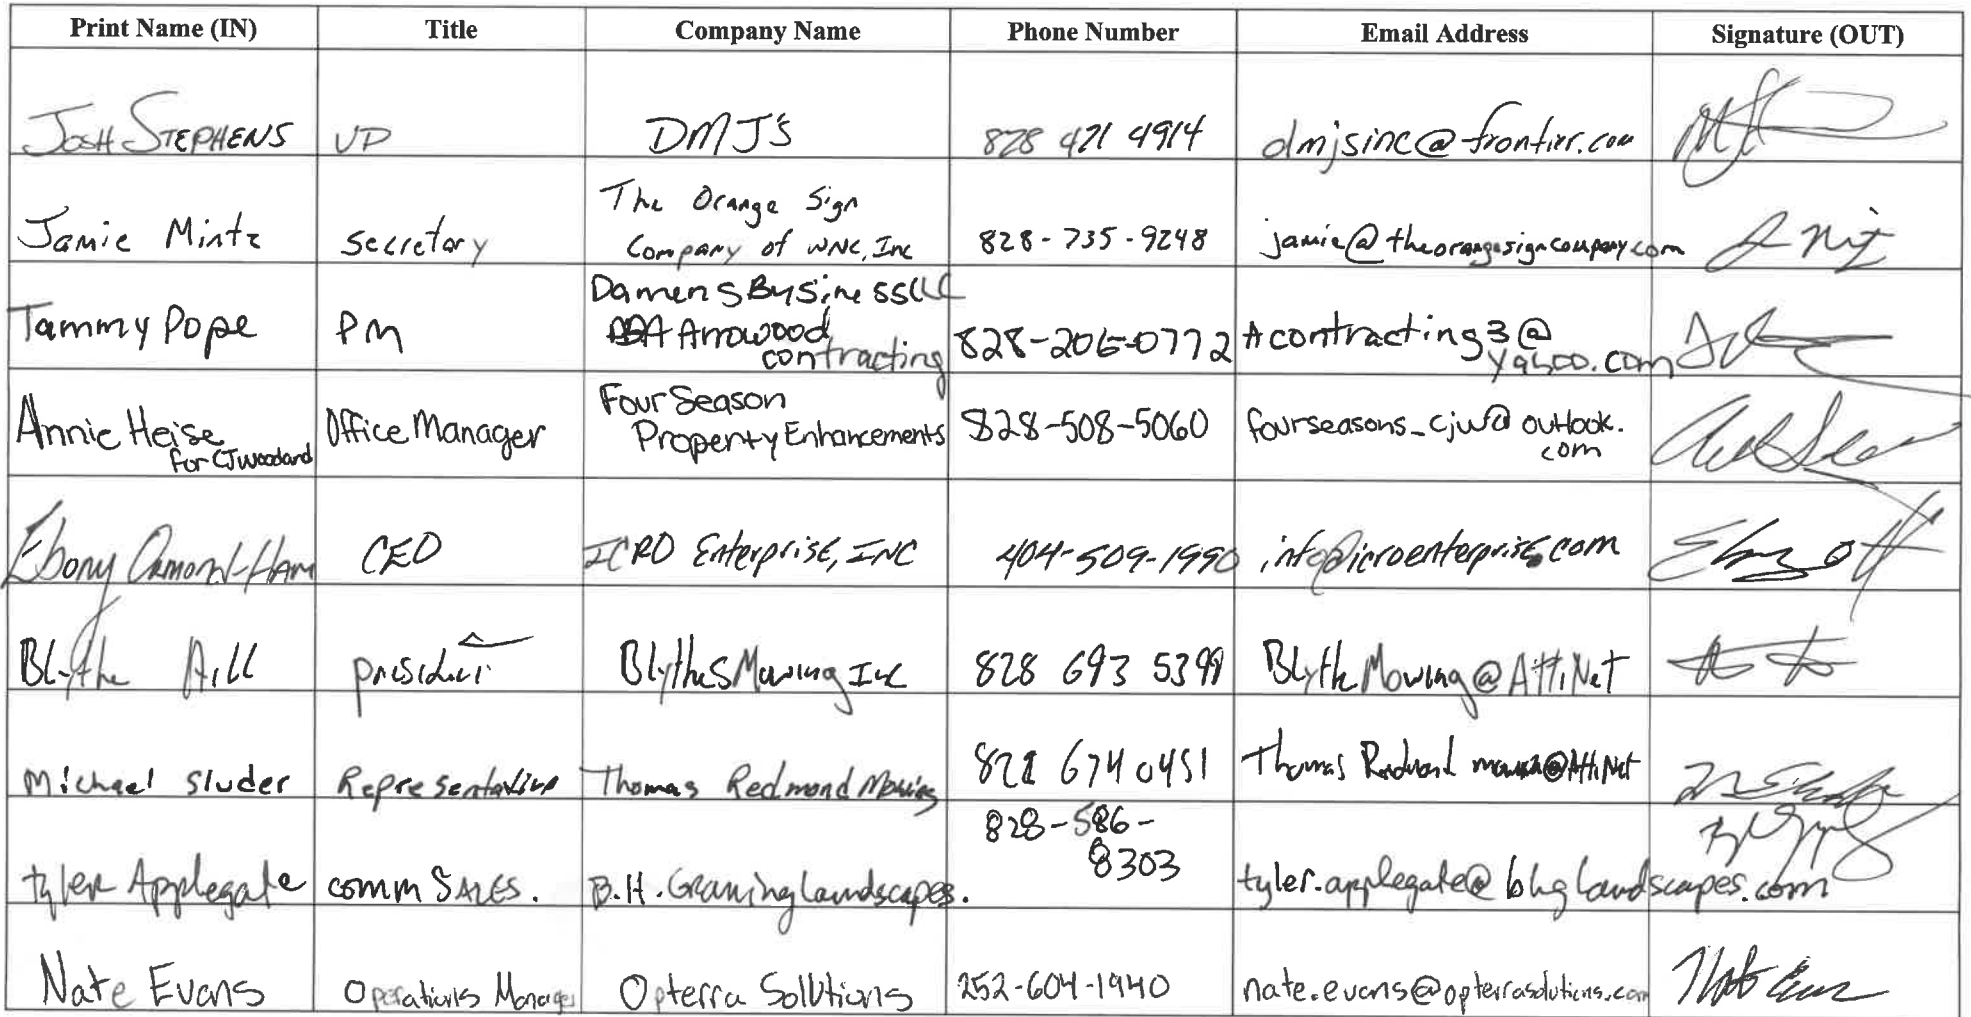 Print Name (IN) Title Company Name Phone Number Email Address Signature (OUT)
Josh Stephens VP DMJ's 828 421 4914 dmjsinc@frontier.com
Jamie Mintz Secretary The Orange Sign
Company of WNC, Inc 828-735-9248 jamie@theorangesigncompany.com
Tammy Pope PM Damens Bysiness LLC
DBA Arrowood
contracting 828-206-0772 Acontracting3@
yahoo.com
Annie Heise
for CJ Woodard Office Manager Four Season
Property Enhancements 828-508-5060 fourseasons_cjw@outlook.
com
Ebony Ormond-Ham CEO ICRO Enterprise, INC 404-509-1990 info@icroenterprise.com
Blythe Hill president Blythes Mowing Inc 828 693 5399 BlytheMowing@Att.Net
Michael Sluder Representative Thomas Redmond Mowing 828 674 0451 Thomas Redmond mowing@Att.Net
tyler Applegate comm SALES. B.H. Graning Landscapes. 828-586-
8303 tyler.applegate@bhglandscapes.com
Nate Evans Operations Manager Opterra Solutions 252-604-1940 nate.evans@opterrasolutions.com